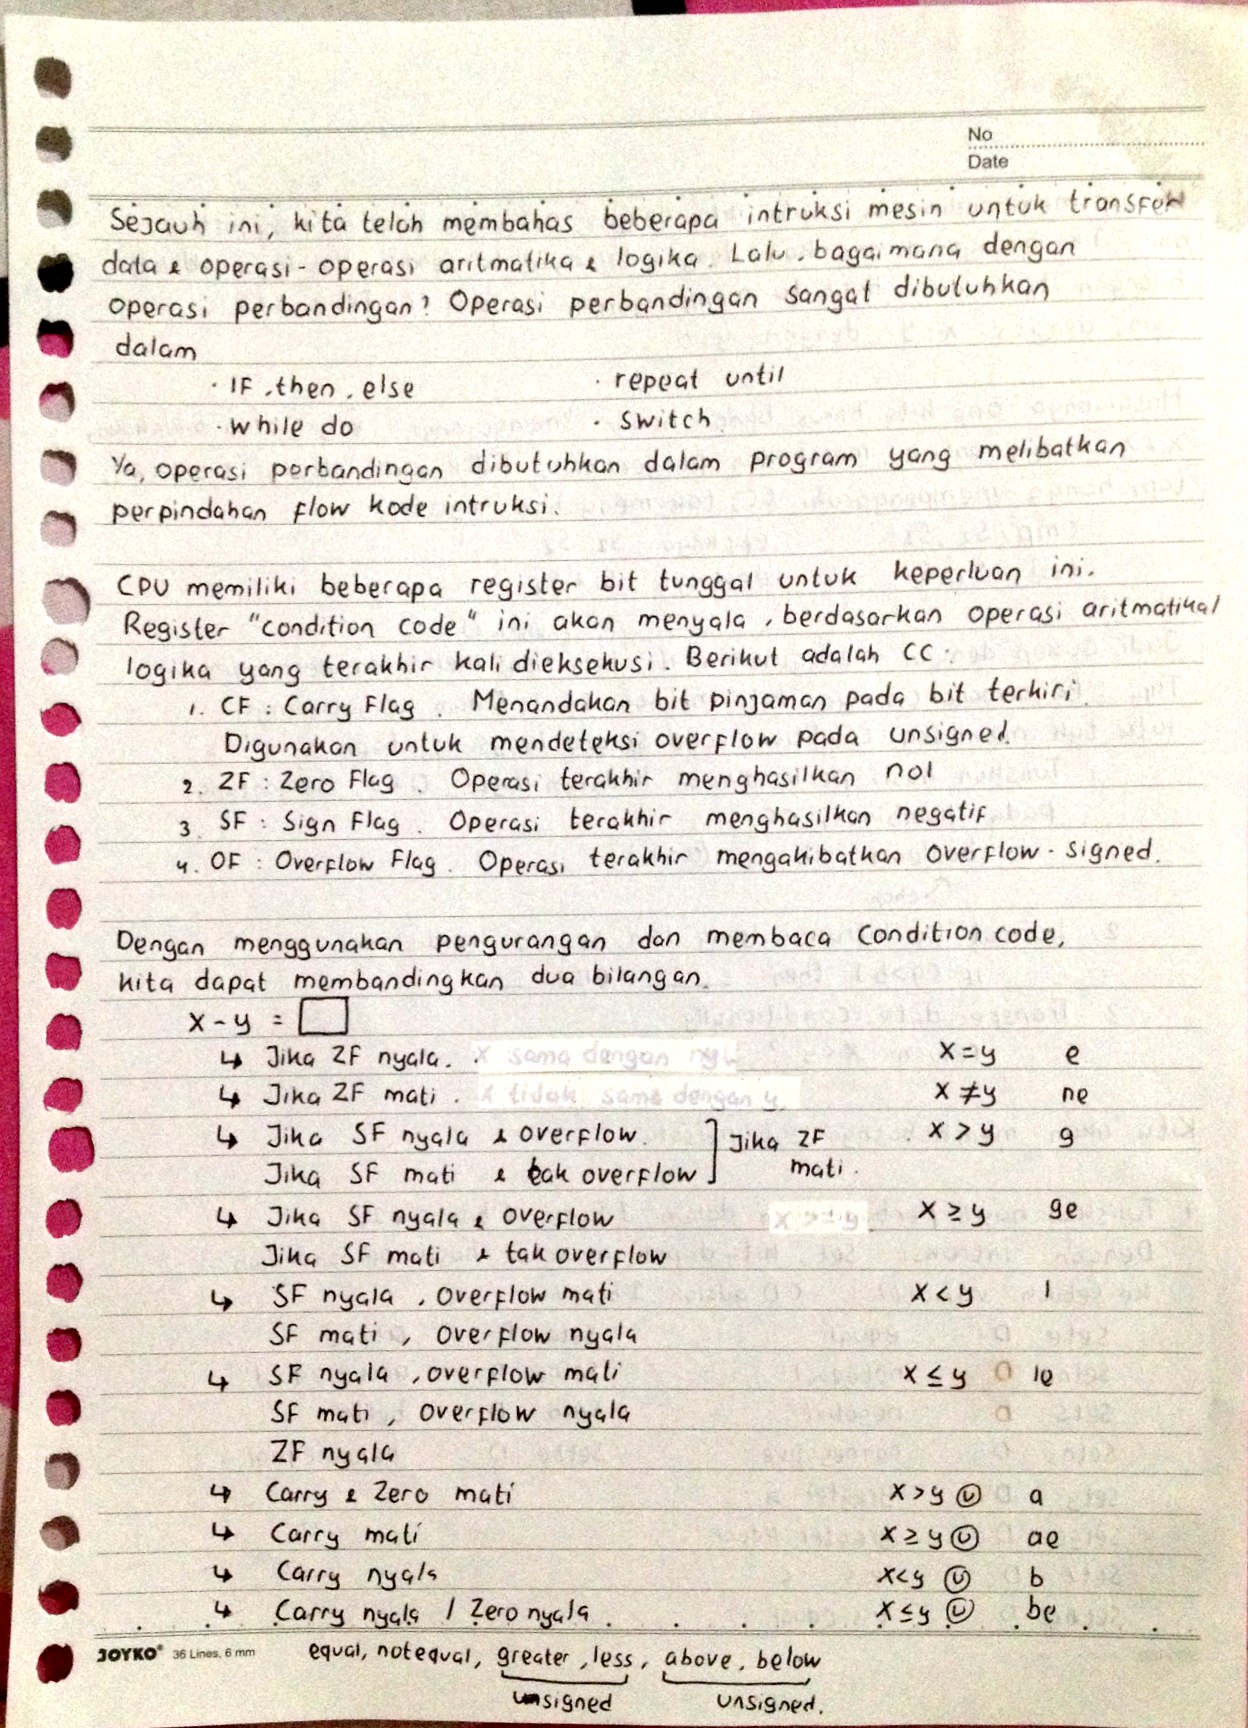 No
Date
Sejauh ini, kita telah membahas beberapa intruksi mesin untuk transfer
data & operasi-operasi aritmatika & logika. Lalu, bagaimana dengan
operasi perbandingan? Operasi perbandingan sangat dibutuhkan
dalam
· IF, then, else · repeat until
· While do · Switch
Ya, operasi perbandingan dibutuhkan dalam program yang melibatkan
perpindahan flow kode intruksi.
CPU memiliki beberapa register bit tunggal untuk keperluan ini.
Register "condition code" ini akan menyala, berdasarkan operasi aritmatika/
logika yang terakhir kali dieksekusi. Berikut adalah CC:
1. CF : Carry Flag. Menandakan bit pinjaman pada bit terkiri.
Digunakan untuk mendeteksi overflow pada unsigned.
2. ZF : Zero Flag. Operasi terakhir menghasilkan nol
3. SF : Sign Flag. Operasi terakhir menghasilkan negatif
4. OF : Overflow Flag. Operasi terakhir mengakibatkan overflow - signed.
Dengan menggunakan pengurangan dan membaca Condition code,
kita dapat membandingkan dua bilangan.
x - y = □
↳ Jika ZF nyala. x = y e
↳ Jika ZF mati. x ≠ y ne
↳ Jika SF nyala & overflow. ] Jika ZF x > y g
Jika SF mati & tak overflow mati.
↳ Jika SF nyala & overflow x ≥ y ge
Jika SF mati & tak overflow
↳ SF nyala, Overflow mati x < y l
SF mati, Overflow nyala
↳ SF nyala, overflow mati x ≤ y le
SF mati, Overflow nyala
ZF nyala
↳ Carry & Zero mati x > y Ⓤ a
↳ Carry mati x ≥ y Ⓤ ae
↳ Carry nyala x < y Ⓤ b
↳ Carry nyala / Zero nyala x ≤ y Ⓤ be
JOYKO® 36 Lines, 6 mm
equal, notequal, greater, less, above, below
signed unsigned.